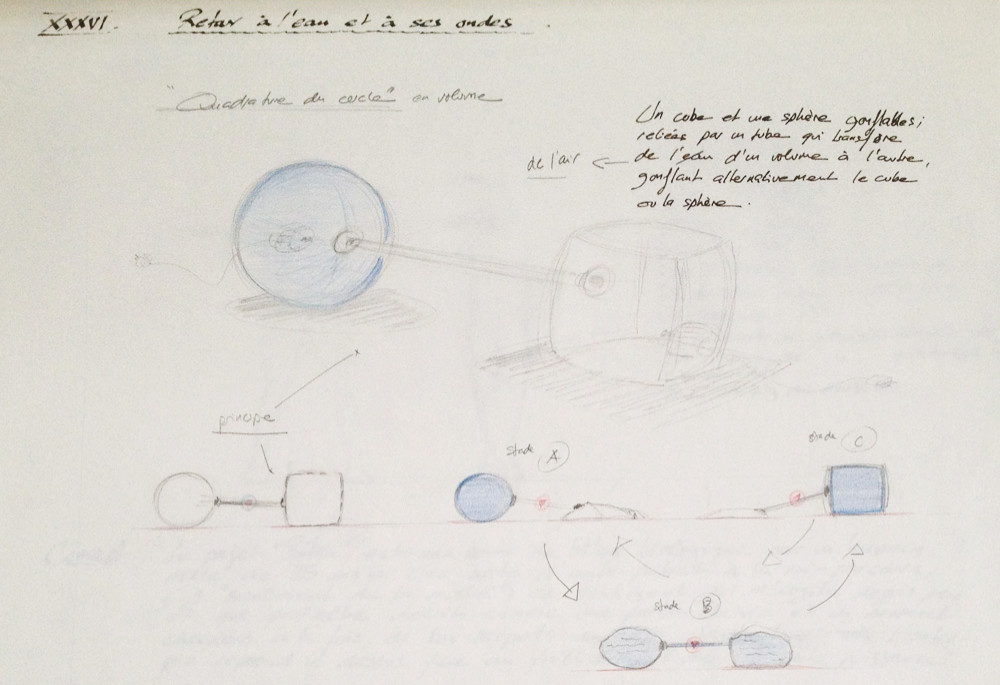 XXXVI. Retour à l'eau et à ses ondes.
"Quadrature du cercle" en volume
Un cube et une sphère gonflables;
reliées par un tube qui transfère
de l'air ← de l'eau d'un volume à l'autre,
gonflant alternativement le cube
ou la sphère.
principe
stade A
stade C
stade B